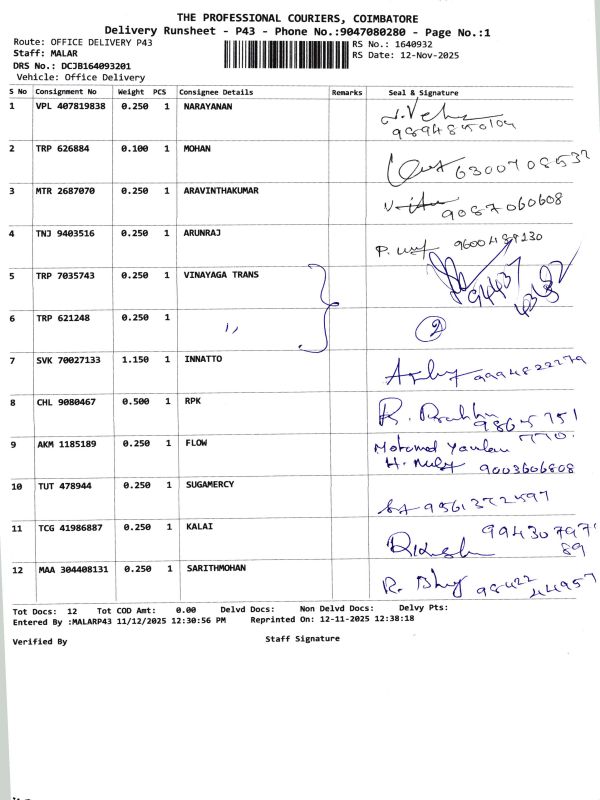 THE PROFESSIONAL COURIERS, COIMBATORE
Delivery Runsheet - P43 - Phone No.:9047080280 - Page No.:1
Route: OFFICE DELIVERY P43
RS No.: 1640932
Staff: MALAR
RS Date: 12-Nov-2025
DRS No.: DCJB164093201
Vehicle: Office Delivery
S No Consignment No Weight PCS Consignee Details Remarks Seal & Signature
1 VPL 407819838 0.250 1 NARAYANAN
9894850104
2 TRP 626884 0.100 1 MOHAN
6300708532
3 MTR 2687070 0.250 1 ARAVINTHAKUMAR
9087060608
4 TNJ 9403516 0.250 1 ARUNRAJ
5 TRP 7035743 0.250 1 VINAYAGA TRANS
94437
6 TRP 621248 0.250 1 ,, 2
7 SVK 70027133 1.150 1 INNATTO
9994822279
8 CHL 9080467 0.500 1 RPK
9 AKM 1185189 0.250 1 FLOW
9003606808
10 TUT 478944 0.250 1 SUGAMERCY
11 TCG 41986887 0.250 1 KALAI
99430797
89
12 MAA 304408131 0.250 1 SARITHMOHAN
98422
44957
Tot Docs: 12 Tot COD Amt: 0.00 Delvd Docs: Non Delvd Docs: Delvy Pts:
Entered By :MALARP43 11/12/2025 12:30:56 PM Reprinted On: 12-11-2025 12:38:18
Verified By Staff Signature